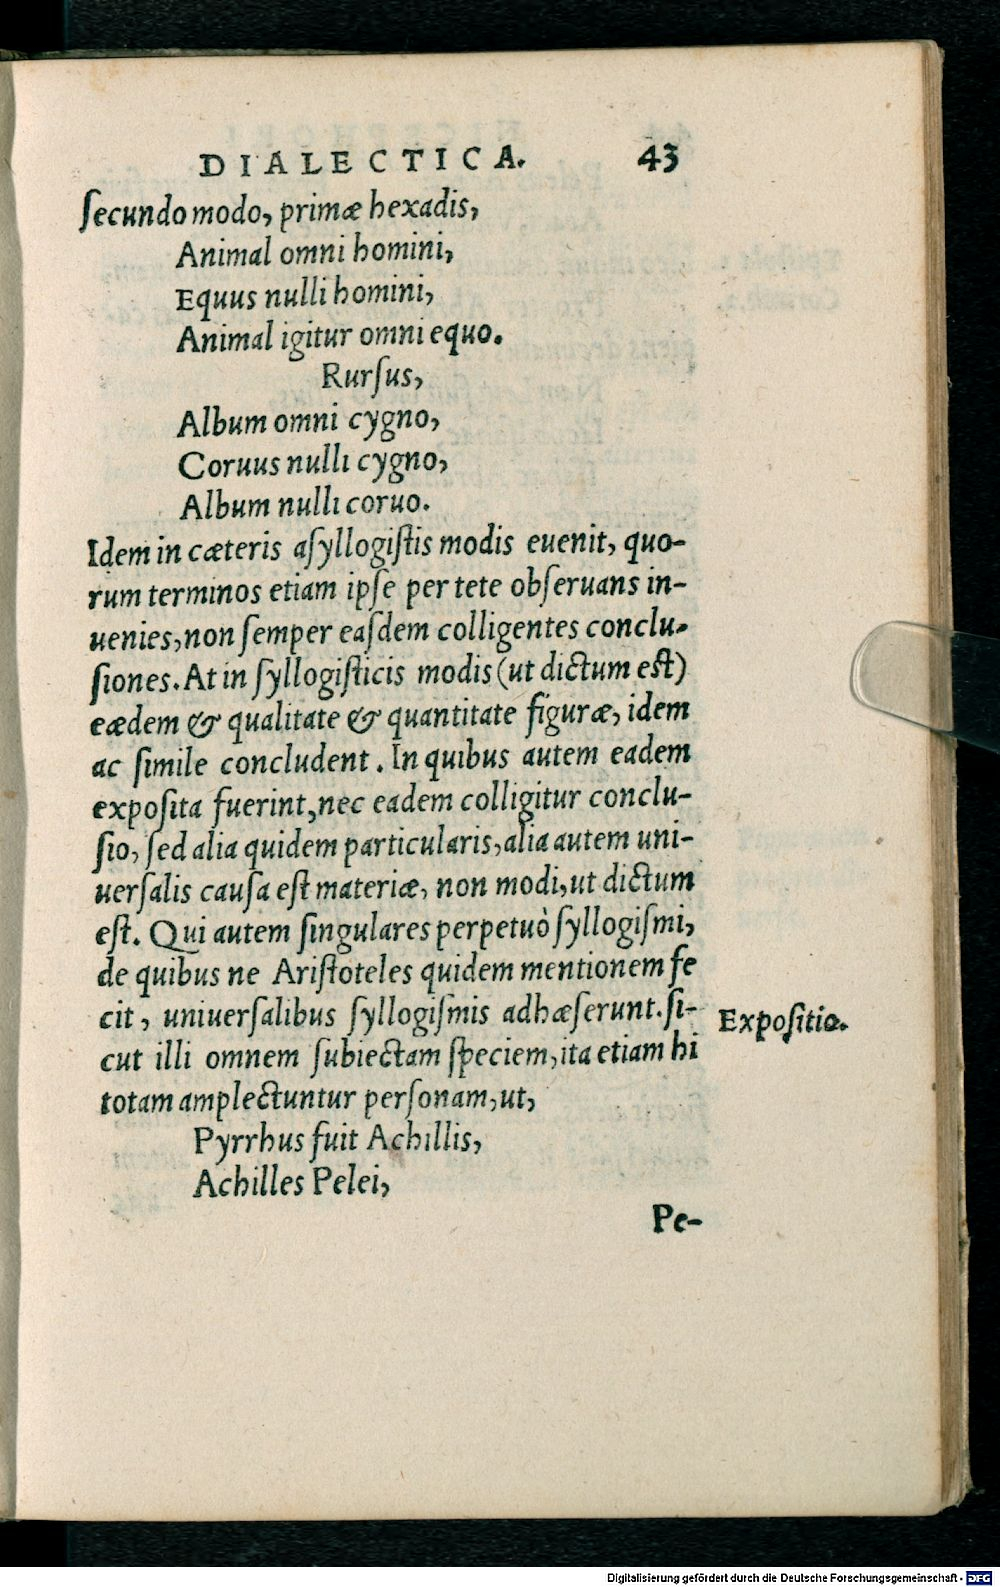 DIALECTICA. 43
ſecundo modo, primæ hexadis,
Animal omni homini,
Equus nulli homini,
Animal igitur omni equo.
Rurſus,
Album omni cygno,
Coruus nulli cygno,
Album nulli coruo.
Idem in cæteris aſyllogiſtis modis euenit, quo-
rum terminos etiam ipſe per tete obſeruans in-
uenies, non ſemper eaſdem colligentes conclu-
ſiones. At in ſyllogiſticis modis (ut dictum eſt)
eædem & qualitate & quantitate figuræ, idem
ac ſimile concludent. In quibus autem eadem
expoſita fuerint, nec eadem colligitur conclu-
ſio, ſed alia quidem particularis, alia autem uni-
uerſalis cauſa eſt materiæ, non modi, ut dictum
eſt. Qui autem ſingulares perpetuò ſyllogiſmi,
de quibus ne Ariſtoteles quidem mentionem fe
cit, uniuerſalibus ſyllogiſmis adhæſerunt. ſi-
Expoſitio.
cut illi omnem ſubiectam ſpeciem, ita etiam hi
totam amplectuntur perſonam, ut,
Pyrrhus fuit Achillis,
Achilles Pelei,
Pe-
Digitalisierung gefördert durch die Deutsche Forschungsgemeinschaft - DFG